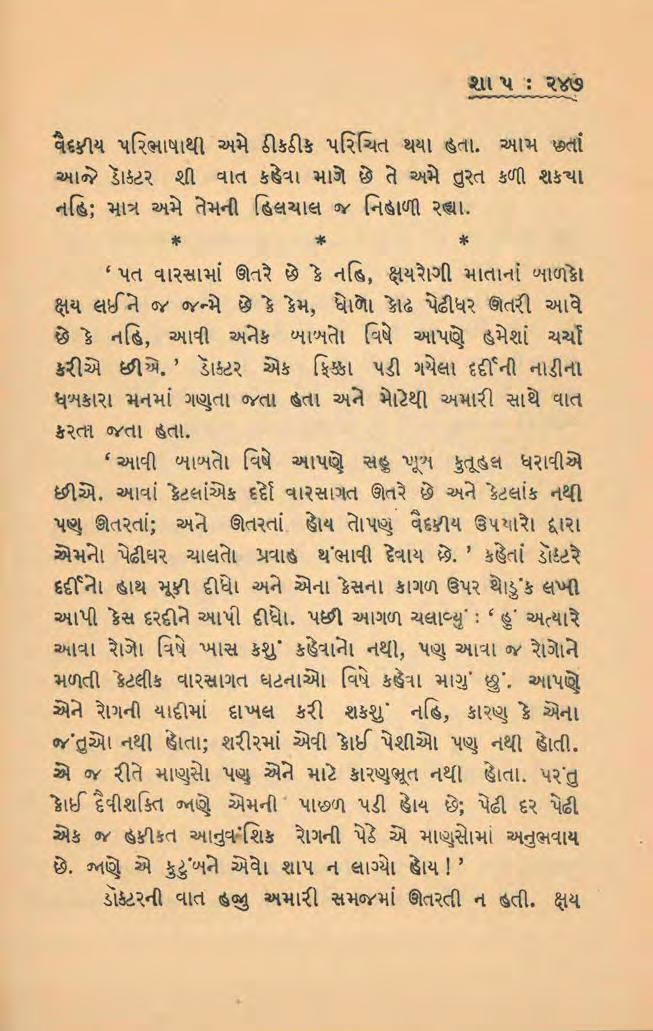 શાપ : ૨૪૭
વૈદકીય પરિભાષાથી અમે ઠીકઠીક પરિચિત થયા હતા. આમ છતાં
આજે ડૉક્ટર શી વાત કહેવા માગે છે તે અમે તુરત કળી શક્યા
નહિ; માત્ર અમે તેમની હિલચાલ જ નિહાળી રહ્યા.
* * *
‘ પત વારસામાં ઊતરે છે કે નહિ, ક્ષયરોગી માતાનાં બાળકો
ક્ષય લઈને જ જન્મે છે કે કેમ, ધોળો કોઢ પેઢીધર ઊતરી આવે
છે કે નહિ, આવી અનેક બાબતો વિષે આપણે હમેશાં ચર્ચા
કરીએ છીએ. ’ ડૉક્ટર એક ફિક્કા પડી ગયેલા દર્દીની નાડીના
ધબકારા મનમાં ગણતા જતા હતા અને મોટેથી અમારી સાથે વાત
કરતા જતા હતા.
‘ આવી બાબતો વિષે આપણે સહુ ખૂબ કુતૂહલ ધરાવીએ
છીએ. આવાં કેટલાંએક દર્દો વારસાગત ઊતરે છે અને કેટલાંક નથી
પણ ઊતરતાં; અને ઊતરતાં હોય તોપણ વૈદકીય ઉપચારો દ્વારા
એમનો પેઢીધર ચાલતો પ્રવાહ થંભાવી દેવાય છે. ’ કહેતાં ડૉક્ટરે
દર્દીનો હાથ મૂકી દીધો અને એના કેસના કાગળ ઉપર થોડુંક લખી
આપી કેસ દરદીને આપી દીધો. પછી આગળ ચલાવ્યું : ‘ હું અત્યારે
આવા રોગો વિષે ખાસ કશું કહેવાનો નથી, પણ આવા જ રોગોને
મળતી કેટલીક વારસાગત ઘટનાઓ વિષે કહેવા માગું છું. આપણે
એને રોગની યાદીમાં દાખલ કરી શકશું નહિ, કારણ કે એના
જંતુઓ નથી હોતા; શરીરમાં એવી કોઈ પેશીઓ પણ નથી હોતી.
એ જ રીતે માણસો પણ એને માટે કારણભૂત નથી હોતા. પરંતુ
કોઈ દૈવીશક્તિ જાણે એમની પાછળ પડી હોય છે; પેઢી દર પેઢી
એક જ હકીકત આનુવંશિક રોગની પેઠે એ માણસોમાં અનુભવાય
છે. જાણે એ કુટુંબને એવો શાપ ન લાગ્યો હોય ! ’
ડૉક્ટરની વાત હજુ અમારી સમજમાં ઊતરતી ન હતી. ક્ષય